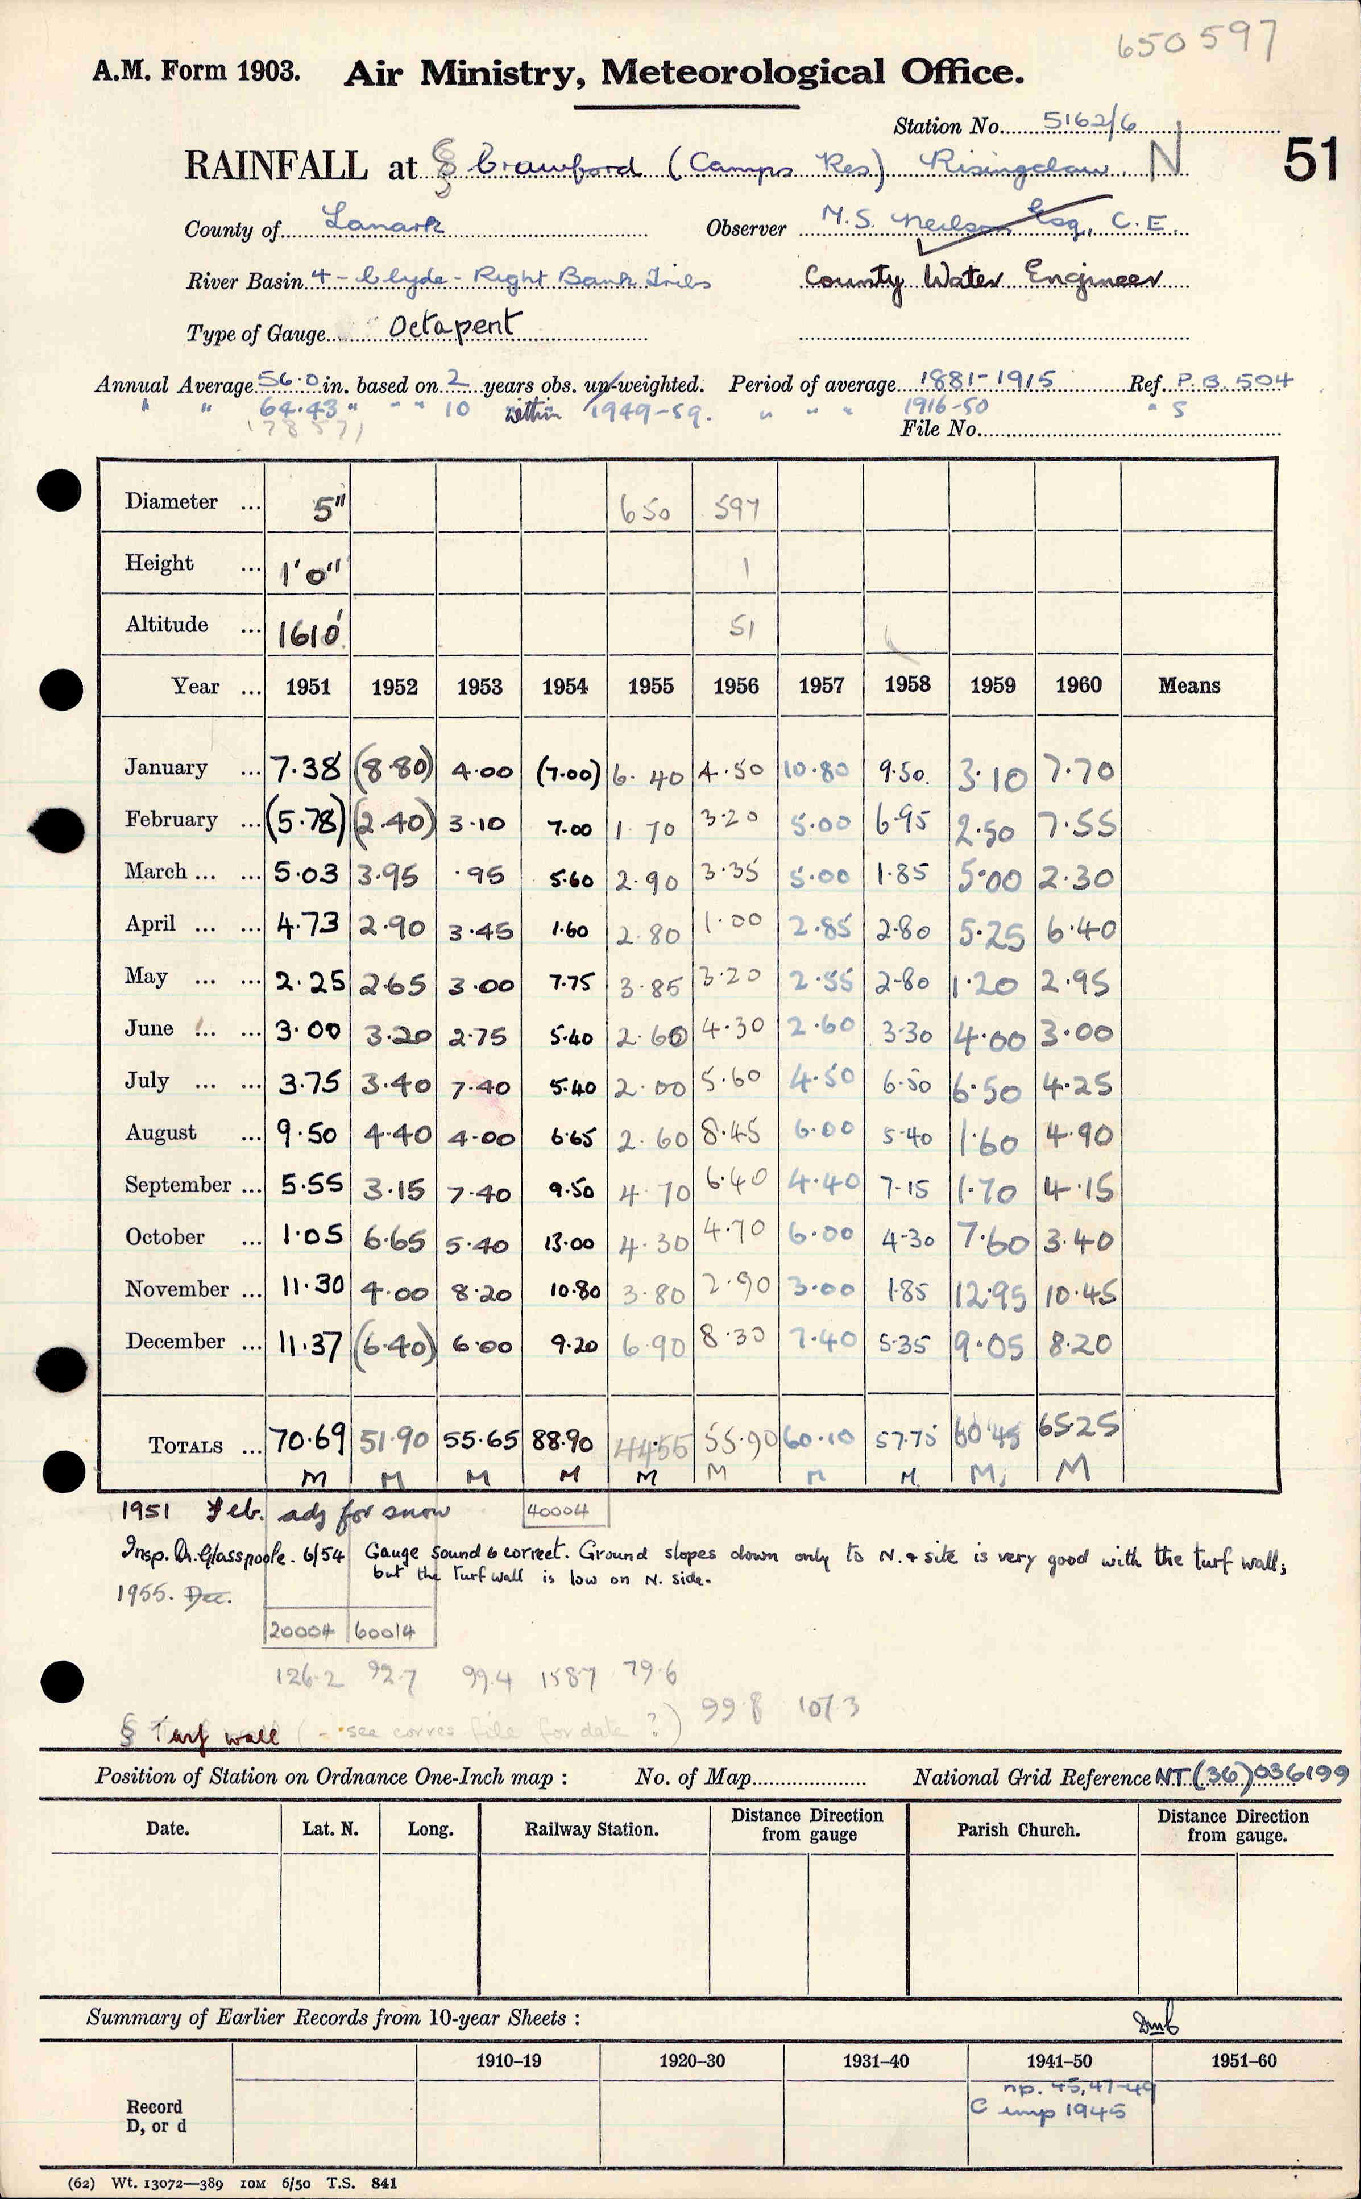 650597
A.M. Form 1903. Air Ministry, Meteorological Office.
Station No. 5162/6
RAINFALL at § Crawford (Camps Res) Risingclaw. N 51
County of Lanark Observer N.S. Neilson Esq, C.E.
River Basin 4 - Clyde - Right Bank Tribs County Water Engineer
Type of Gauge Octapent
Annual Average 56.0 in. based on 2 years obs. un-weighted. Period of average 1881-1915 Ref. P.B. 504
" " 64.43 " " " 10 within 1949-59. " " " 1916-50 " S
File No.
Diameter ... 5" 650 597
Height ... 1'0" 1
Altitude ... 1610' 51
Year ... 1951 1952 1953 1954 1955 1956 1957 1958 1959 1960 Means
January ... 7.38 (8.80) 4.00 (7.00) 6.40 4.50 10.80 9.50 3.10 7.70
February ... (5.78) (2.40) 3.10 7.00 1.70 3.20 5.00 6.95 2.50 7.55
March ... ... 5.03 3.95 .95 5.60 2.90 3.35 5.00 1.85 5.00 2.30
April ... ... 4.73 2.90 3.45 1.60 2.80 1.00 2.85 2.80 5.25 6.40
May ... ... 2.25 2.65 3.00 7.75 3.85 3.20 2.55 2.80 1.20 2.95
June ... ... 3.00 3.20 2.75 5.40 2.60 4.30 2.60 3.30 4.00 3.00
July ... ... 3.75 3.40 7.40 5.40 2.00 5.60 4.50 6.50 6.50 4.25
August ... 9.50 4.40 4.00 6.65 2.60 8.45 6.00 5.40 1.60 4.90
September ... 5.55 3.15 7.40 9.50 4.70 6.40 4.40 7.15 1.70 4.15
October ... 1.05 6.65 5.40 13.00 4.30 4.70 6.00 4.30 7.60 3.40
November ... 11.30 4.00 8.20 10.80 3.80 2.90 3.00 1.85 12.95 10.45
December ... 11.37 (6.40) 6.00 9.20 6.90 8.30 7.40 5.35 9.05 8.20
TOTALS ... 70.69 51.90 55.65 88.90 44.55 55.90 60.10 57.75 60.45 65.25
M M M M M M M M M M
1951 Feb. adj for snow 40004
Insp. Dr. Glasspoole. 6/54 Gauge sound & correct. Ground slopes down only to N. & site is very good with the turf wall;
but the turf wall is low on N. side.
1955. Dec.
20004 60014
126.2 92.7 99.4 158.7 79.6
99.8 107.3
§ Turf wall ( - see corres file for date ?)
Position of Station on Ordnance One-Inch map : No. of Map National Grid Reference NT (36) 036199
Date. Lat. N. Long. Railway Station. Distance Direction from gauge Parish Church. Distance Direction from gauge.
Summary of Earlier Records from 10-year Sheets :
1910-19 1920-30 1931-40 1941-50 1951-60
Record
D, or d
np. 45, 47-49
C imp 1945
(62) Wt. 13072—389 10M 6/50 T.S. 841